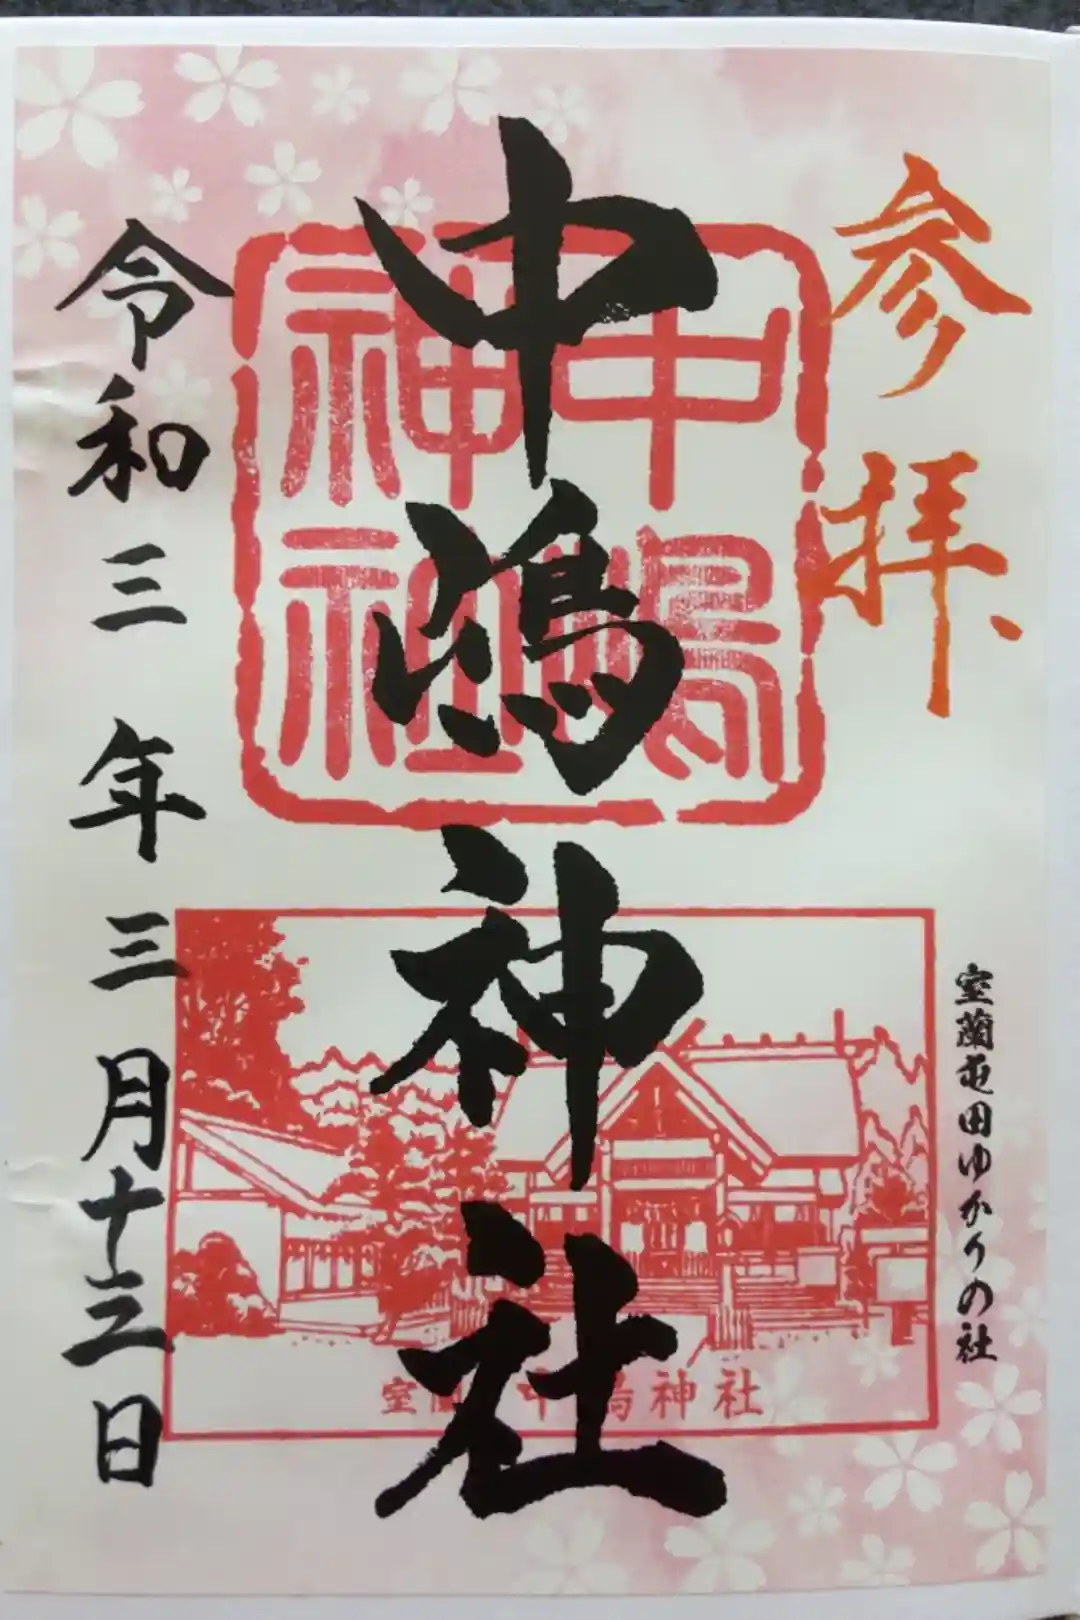 参拝
室蘭屯田ゆかりの社
中嶋神社
中嶋
神社
室蘭 中嶋神社
令和三年三月十三日